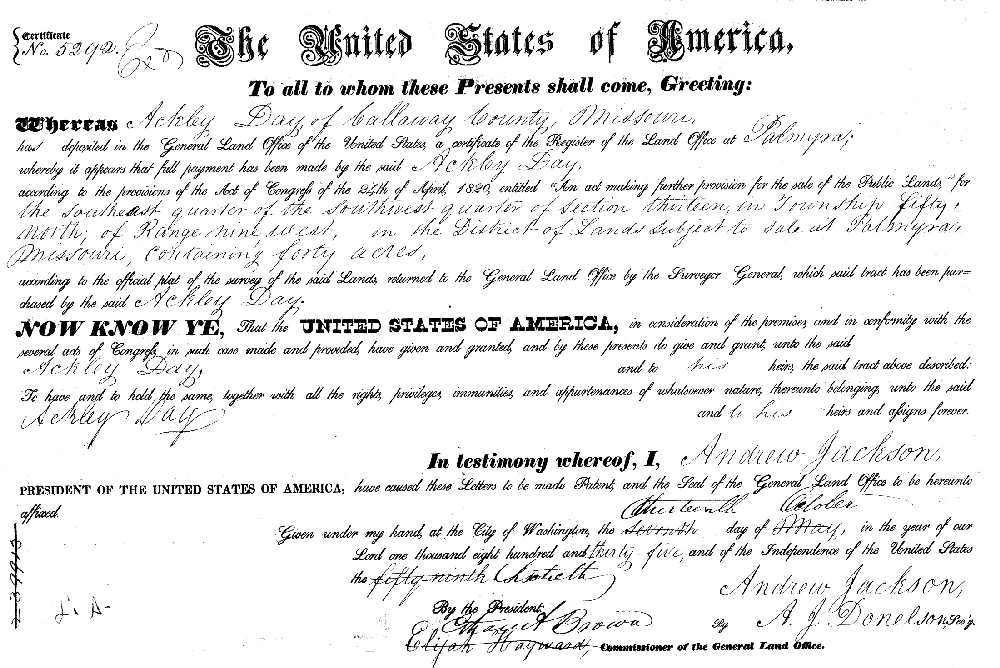 Certificate
No. 5292. Exd
The United States of America,
To all to whom these Presents shall come, Greeting:
Whereas Ackley Day of Callaway County, Missouri,
has deposited in the General Land Office of the United States, a certificate of the Register of the Land Office at Palmyra,
whereby it appears that full payment has been made by the said Ackley Day,
according to the provisions of the Act of Congress of the 24th of April, 1820, entitled "An act making further provision for the sale of the Public Lands," for
the Southeast quarter of the Southwest quarter of Section thirteen, in Township fifty,
North, of Range nine west, in the District of Lands subject to sale at Palmyra,
Missouri, containing forty acres,
according to the official plat of the survey of the said Lands, returned to the General Land Office by the Surveyor General, which said tract has been pur-
chased by the said Ackley Day.
NOW KNOW YE, That the UNITED STATES OF AMERICA, in consideration of the premises, and in conformity with the
several acts of Congress, in such case made and provided, have given and granted, and by these presents do give and grant, unto the said
Ackley Day, and to his heirs, the said tract above described:
To have and to hold the same, together with all the rights, privileges, immunities, and appurtenances of whatsoever nature, thereunto belonging, unto the said
Ackley Day and to his heirs and assigns forever.
In testimony whereof, I, Andrew Jackson,
PRESIDENT OF THE UNITED STATES OF AMERICA, have caused these Letters to be made Patent, and the Seal of the General Land Office to be hereunto
affixed.
thirteenth October
Given under my hand, at the City of Washington, the seventh day of May, in the year of our
Lord one thousand eight hundred and thirty five, and of the Independence of the United States
the fifty ninth Sixtieth
Andrew Jackson,
By the President,
By A. J. Donelson, Sec'y.
Elijah Hayward, Commissioner of the General Land Office.